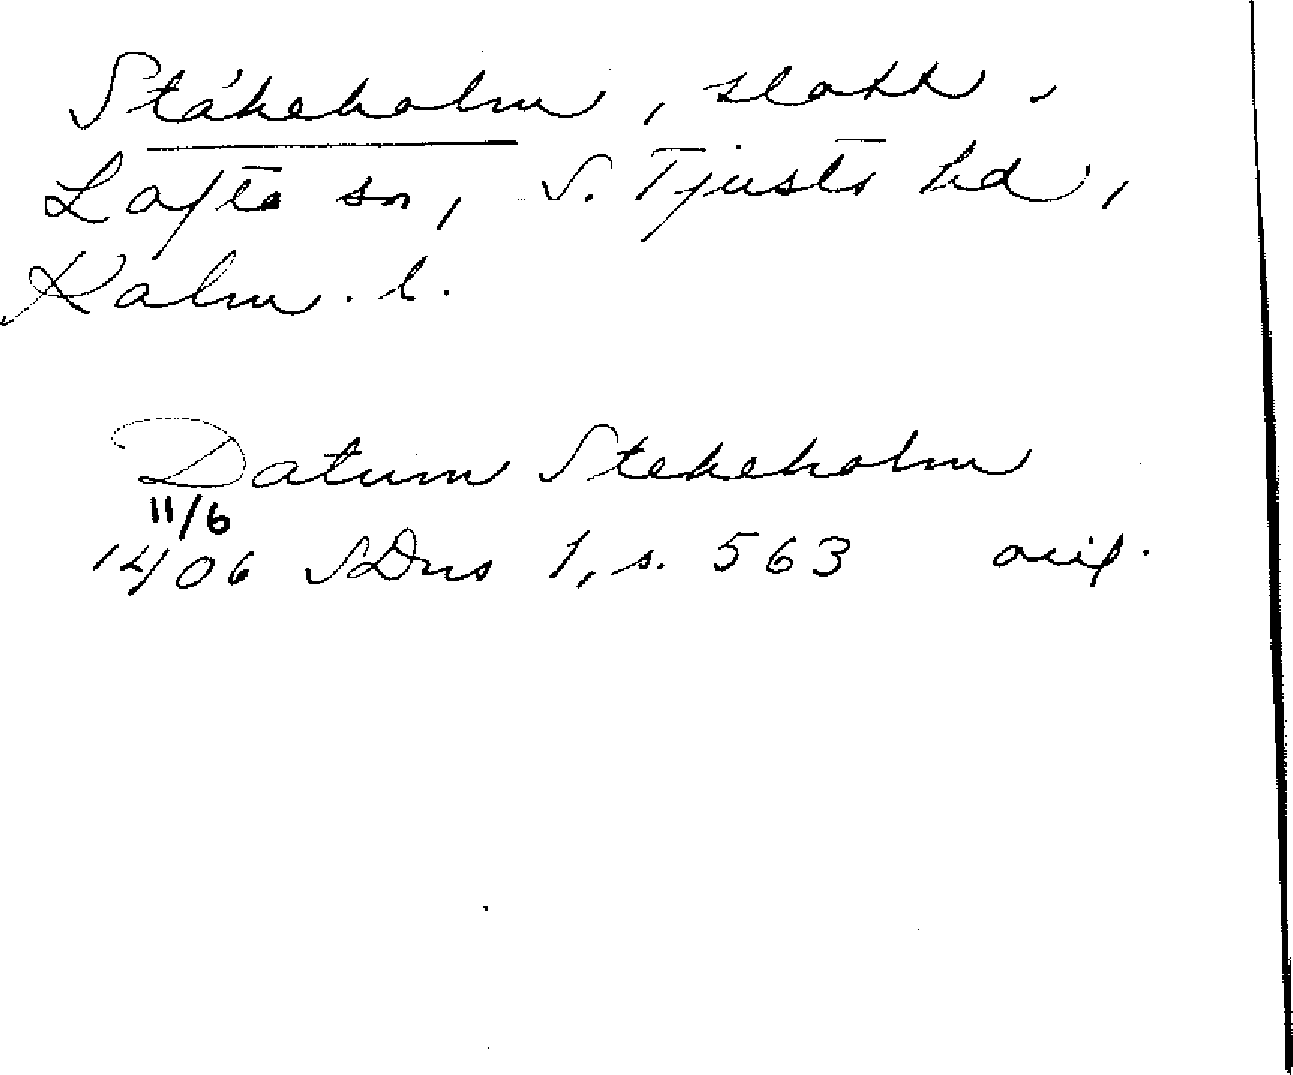 Stäkeholm, slott,
Lofta sn, S. Tjusts hd,
Kalm. l.
Datum Stekeholm
11/6
1406 SDns 1, s. 563 orig.